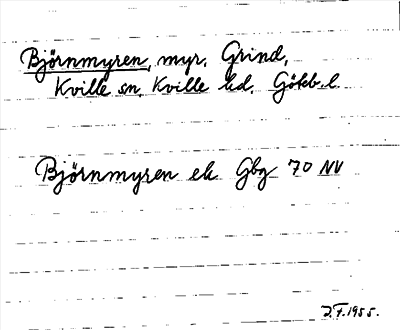 Björnmyren, myr, Grind,
Kville sn, Kville hd, Göteb. l.
Björnmyren ek Gbg 70 NV
J.F. 1955.